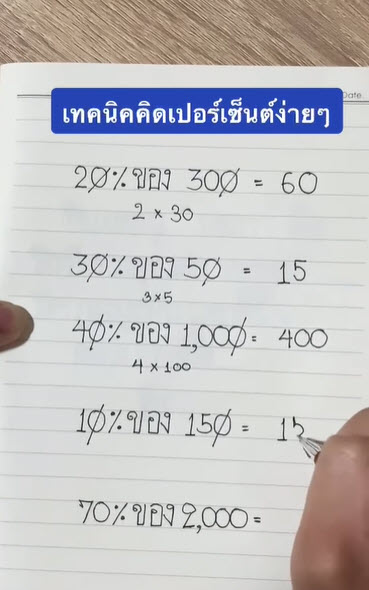 Date
เทคนิคคิดเปอร์เซ็นต์ง่ายๆ
20% ของ 300 = 60
2 × 30
30% ของ 50 = 15
3×5
40% ของ 1,000 = 400
4 × 100
10% ของ 150 = 15
70% ของ 2,000 =